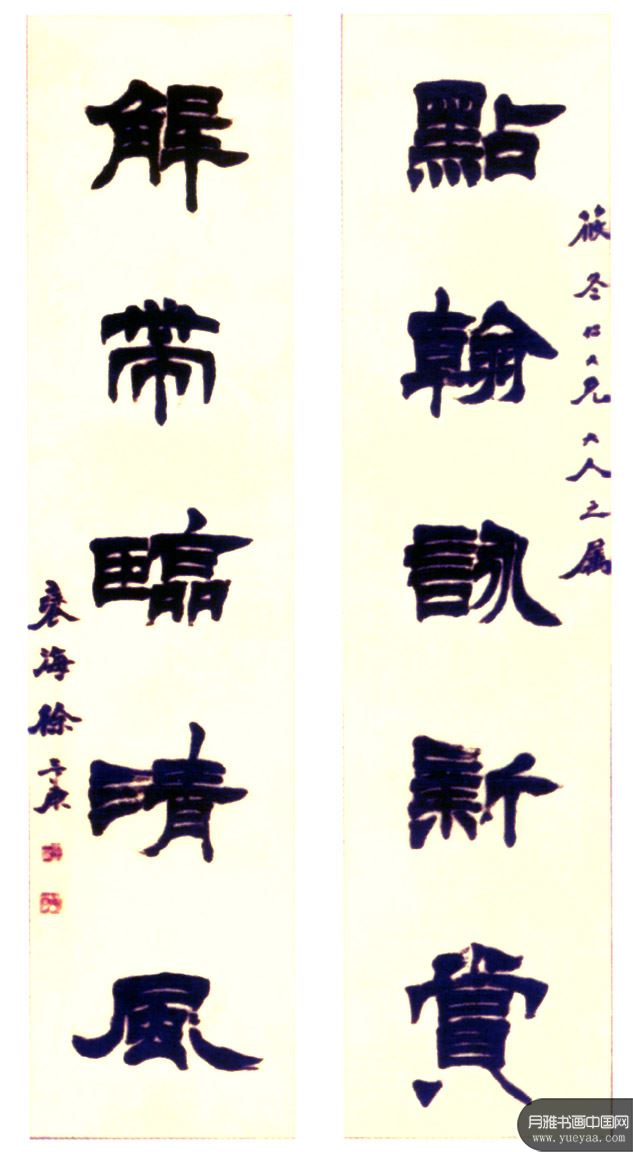 點翰詠新賞
筱冬仁大兄大人之属
解帶臨清風
褎海徐三庚
月雅书画中国网
www.yueyaa.com